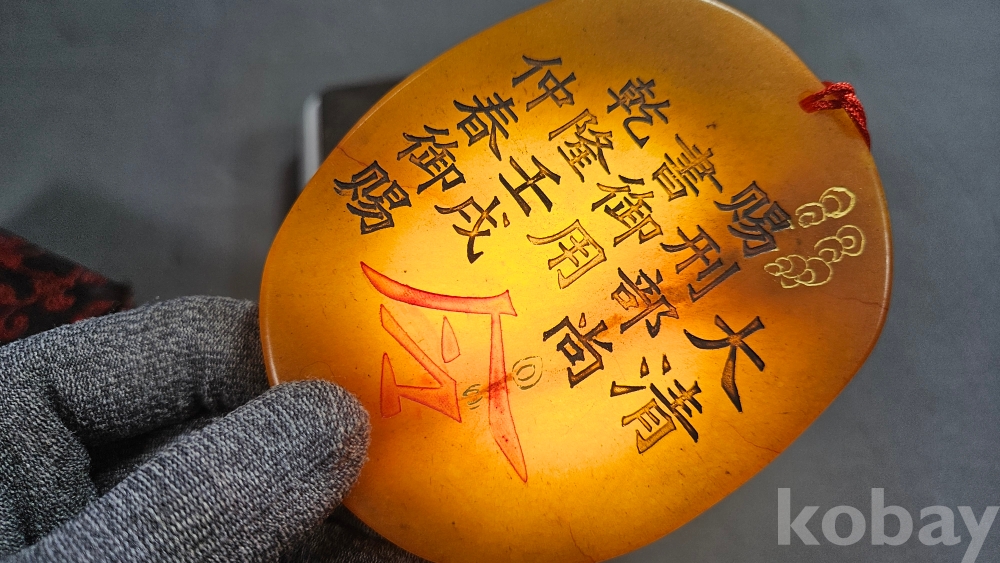 大清
赐刑部尚
書御用
乾隆壬戌
仲春御赐
kobay